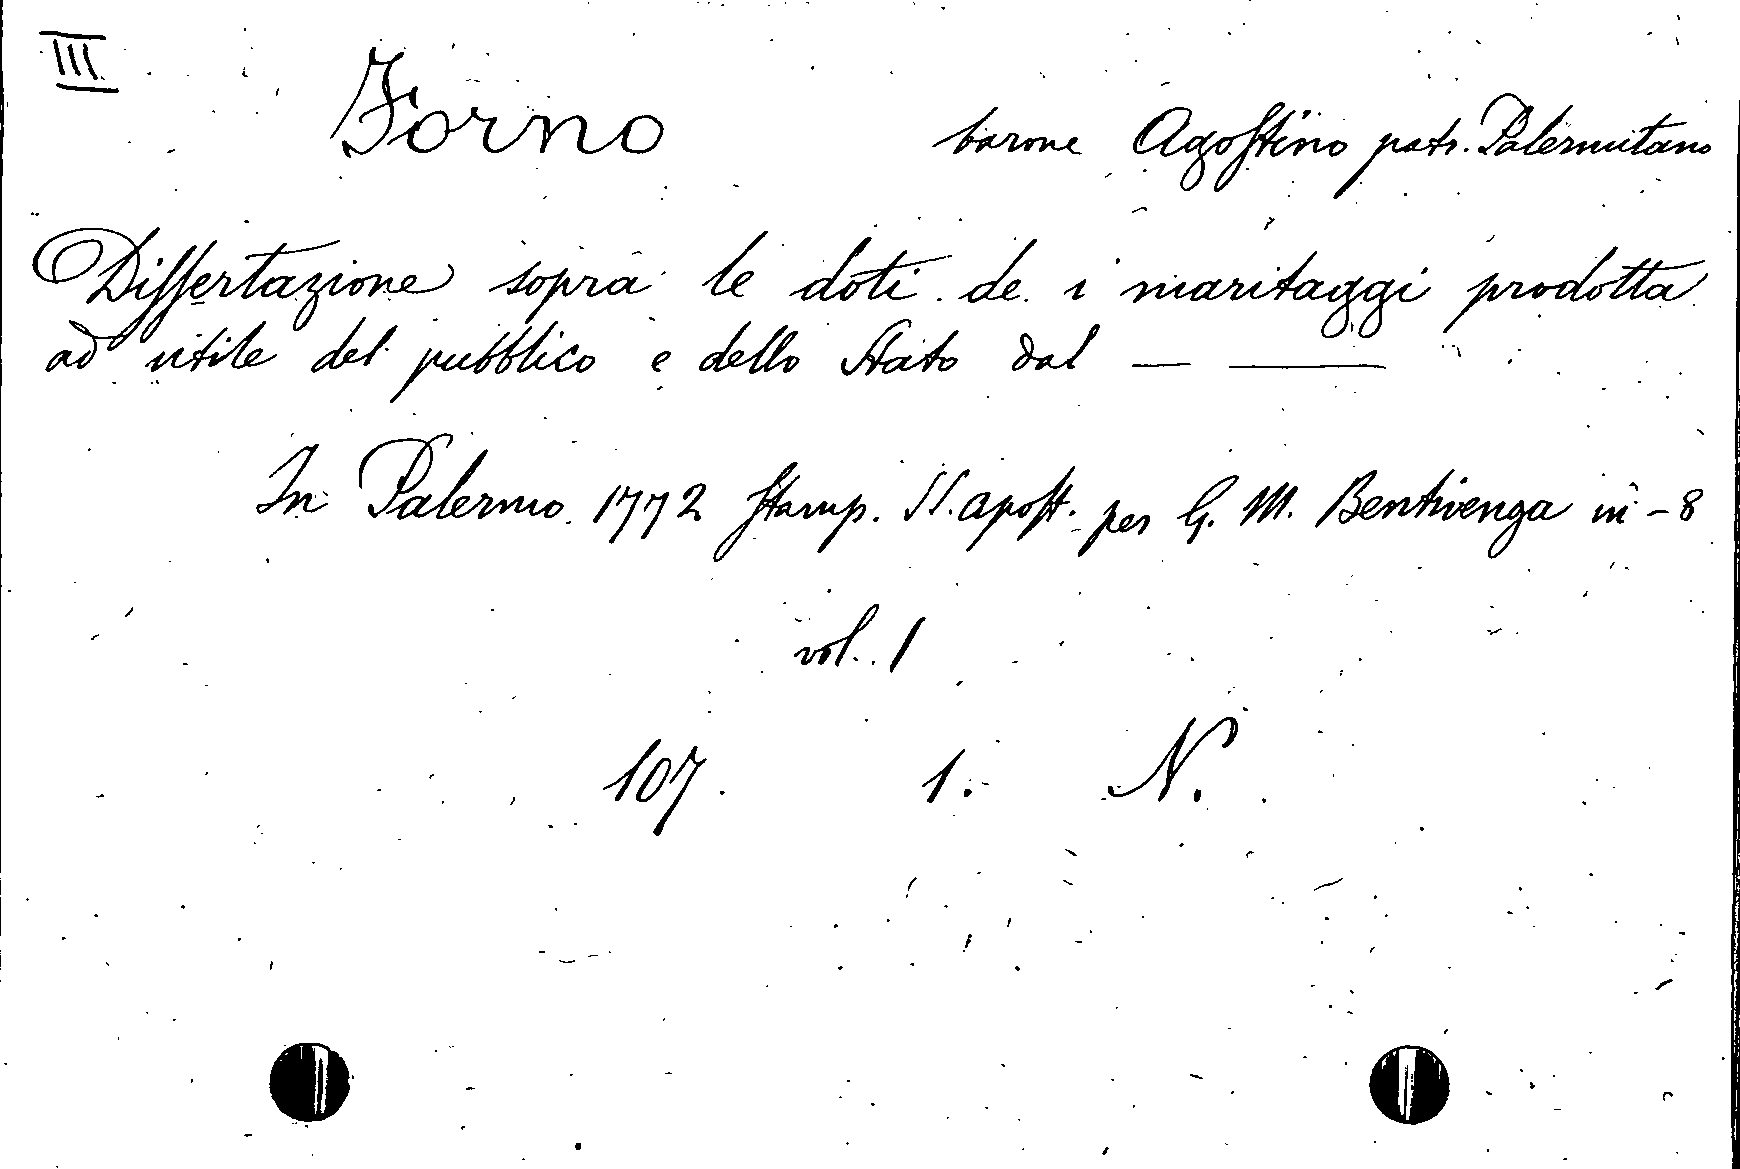 III
Forno barone Agostino patr. Palermitano
Dissertazione sopra le doti de i maritaggi prodotta
ad utile del pubblico e dello Stato dal — ——
In Palermo 1772 stamp. SS. apost. per G. M. Bentivenga in-8
vol. 1
107. 1. N.